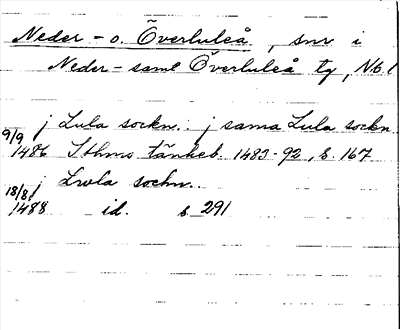 Neder- o. Överluleå, snr i
Neder- samt Överluleå tg, Nb l
j Lula sockn.. j sama Lula sockn
9/9 1486 Sthms tänkeb. 1483-92, s. 167
j Lwla sockn..
18/8 1488 id. s 291